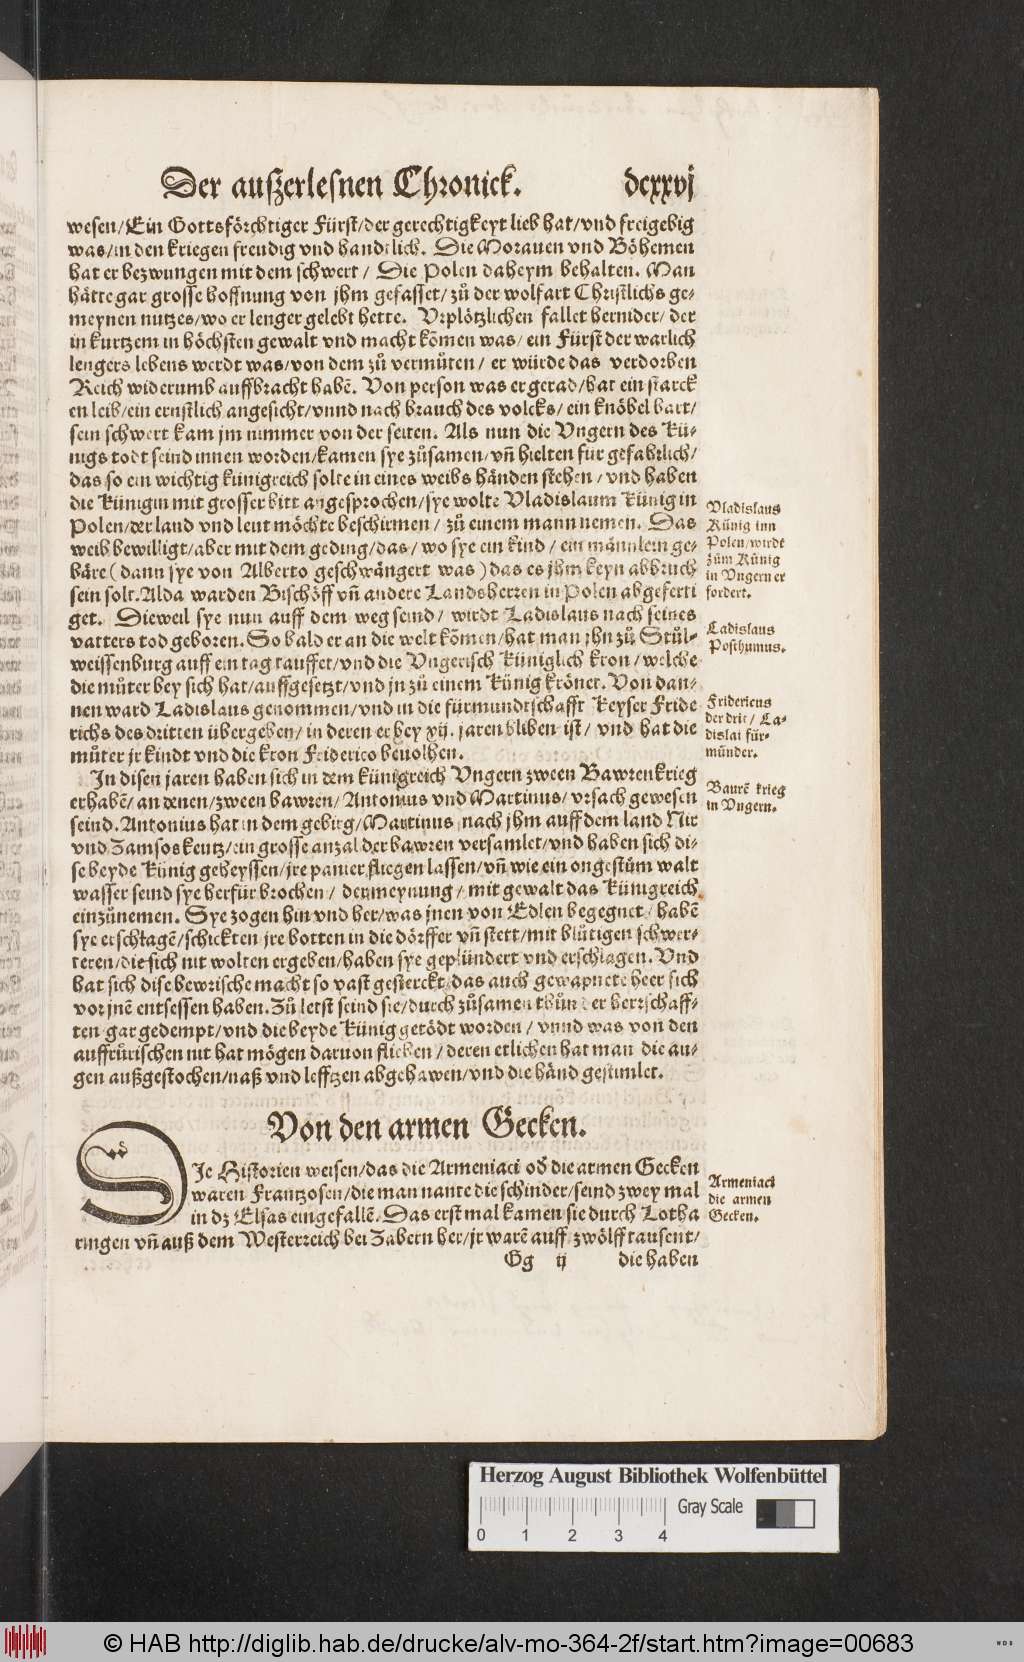 Der außerlesnen Chronick. dcxxvj
wesen/Ein Gottsförchtiger Fürst/der gerechtigkeyt lieb hat/vnd freigebig
was/in den kriegen freudig vnd handtlich. Die Morauen vnd Böhemen
hat er bezwungen mit dem schwert / Die Polen daheym behalten. Man
hätte gar grosse hoffnung von jhm gefasset/zů der wolfart Christlichs ge-
meynen nutzes/wo er lenger gelebt hette. Vrplötzlichen fallet hernider/der
in kurtzem in höchsten gewalt vnd macht kom̃en was/ein Fürst der warlich
lengers lebens werdt was/von dem zů vermůten / er würde das verdorben
Reich widerumb auffbracht habẽ. Von person was er gerad/hat ein starck
en leib/ein ernstlich angesicht/vnnd nach brauch des volcks/ein knöbel bart/
sein schwert kam jm nimmer von der seiten. Als nun die Vngern des Kü-
nigs todt seind innen worden/kamen sye zůsamen/vñ hielten für gefahrlich/
das so ein wichtig künigreich solte in eines weibs händen stehen / vnd haben
die Künigin mit grosser bitt angesprochen/sye wolte Vladislaum Künig in
Polen/der land vnd leut möchte beschirmen / zů einem mann nemen. Das
weib bewilligt/aber mit dem geding/das/wo sye ein kind / ein männlein ge-
bäre (dann sye von Alberto geschwängert was) das es jhm keyn abbruch
sein solt. Alda warden Bischöff vñ andere Landsherren in Polen abgeferti
get. Dieweil sye nun auff dem weg seind/ wirdt Ladislaus nach seines
vatters tod geboren. So bald er an die welt kom̃en/hat man jhn zů Stůl-
weissenburg auff ein tag tauffet/vnd die Vngerisch Küniglich kron/welche
die můter bey sich hat/auffgesetzt/vnd jn zů einem Künig krönet. Von dan-
nen ward Ladislaus genommen/vnd in die fürmundtschafft Keyser Fride
richs des dritten übergeben/in deren er bey xij. jaren bliben ist/ vnd hat die
můter jr kindt vnd die kron Friderico beuolhen.
In disen jaren haben sich in dem künigreich Vngern zween Bawrenkrieg
erhabẽ/an denen/zween bawren/Antonius vnd Martinus/vrsach gewesen
seind. Antonius hat in dem gebirg/Martinus nach jhm auff dem land Nir
vnd Zamsoskeutz/ein grosse anzal der bawren versamlet/vnd haben sich di-
se beyde Künig geheyssen/jre panier fliegen lassen/vñ wie ein ongestüm walt
wasser seind sye herfür brochen / der meynung / mit gewalt das Künigreich
einzůnemen. Sye zogen hin vnd her/was jnen von Edlen begegnet / habẽ
sye erschlagẽ/schickten jre botten in die dörffer vñ stett/mit blůtigen schwer-
teren/die sich nit wolten ergeben/haben sye geplündert vnd erschlagen. Vnd
hat sich dise bewrische macht so vast gesterckt/das auch gewapnete heer sich
vor jnẽ entsessen haben. Zů letst seind sie/durch zůsamen thůn der herrschaff-
ten gar gedempt/vnd die beyde Künig getödt worden / vnnd was von den
auffrůrischen nit hat mögen daruon fliehen / deren etlichen hat man die au-
gen außgestochen/naß vnd lefftzen abgehawen/vnd die händ gestimlet.
Vladislaus
Künig inn
Polen/wirdt
zům Künig
in Vngern er
fordert.
Ladislaus
Posthumus.
Fridericus
der drit/ La-
dislai für-
münder.
Baurẽ krieg
in Vngern.
Von den armen Gecken.
DJe Historien weisen/das die Armeniaci od̓ die armen Gecken
waren Frantzosen/die man nante die schinder/seind zwey mal
in dz Elsas eingefallẽ. Das erst mal kamen sie durch Lotha
ringen vñ auß dem Westerreich bei Zabern her/jr warẽ auff zwölff tausent/
Gg ij die haben
Armeniaci
die armen
Gecken.
Herzog August Bibliothek Wolfenbüttel
Gray Scale
0 1 2 3 4
© HAB http://diglib.hab.de/drucke/alv-mo-364-2f/start.htm?image=00683